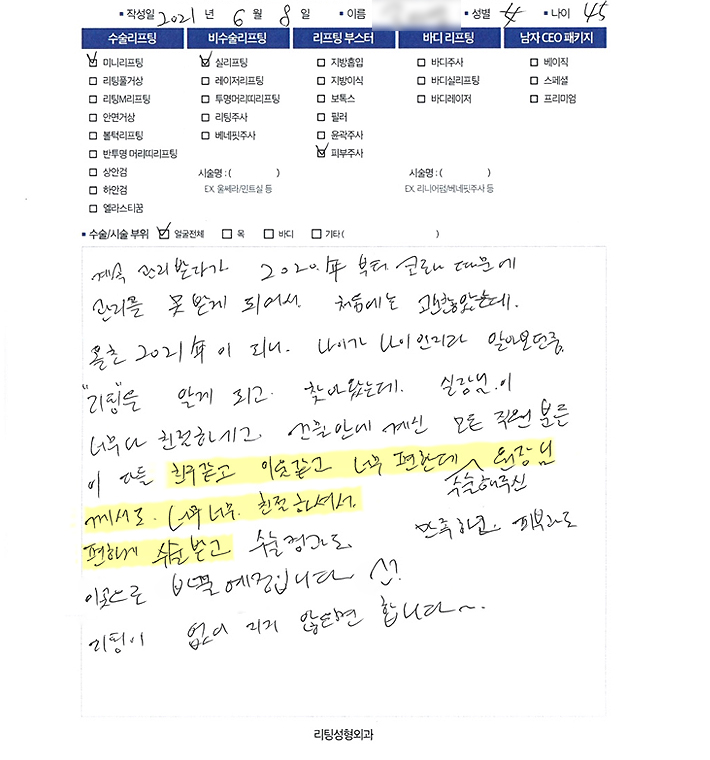 ▪ 작성일 2021 년 6 월 8 일 ▪ 이름 ▪ 성별 女 ▪ 나이 45
수술리프팅 비수술리프팅 리프팅 부스터 바디 리프팅 남자 CEO 패키지
☑ 미니리프팅 ☑ 실리프팅 ☐ 지방흡입 ☐ 바디주사 ☐ 베이직
☐ 리팅풀거상 ☐ 레이저리프팅 ☐ 지방이식 ☐ 바디실리프팅 ☐ 스페셜
☐ 리팅M리프팅 ☐ 투명머리띠리프팅 ☐ 보톡스 ☐ 바디레이저 ☐ 프리미엄
☐ 안면거상 ☐ 리팅주사 ☐ 필러
☐ 볼턱리프팅 ☐ 베네핏주사 ☐ 윤곽주사
☐ 반투명 머리띠리프팅 ☑ 피부주사
☐ 상안검 시술명 : ( ) 시술명 : ( )
☐ 하안검 EX. 울쎄라/민트실 등 EX. 리니어펌/베네핏주사 등
☐ 엘라스티꿈
▪ 수술/시술 부위 ☑ 얼굴전체 ☐ 목 ☐ 바디 ☐ 기타 ( )
계속 관리받다가 2020.年 부터 코로나 때문에
관리를 못 받게 되어서. 처음에는 괜찮았는데.
올초 2021年이 되니. 나이가 나이인지라 알아보던중
"리팅"을 알게 되고. 찾아왔는데. 실장님.이
너무나 친절하시고 건물안에 계신 모든 직원 분들
이 다들 친구같고 이웃같고 너무 편한데 원장님
수술해주신
께서도. 너무너무. 친절하셔서.
편하게 수술받고 수술결과도 만족하고. 피부과도
이곳으로 바꿀예정입니다
리팅이 없어 지지 않았으면 합니다~.
리팅성형외과